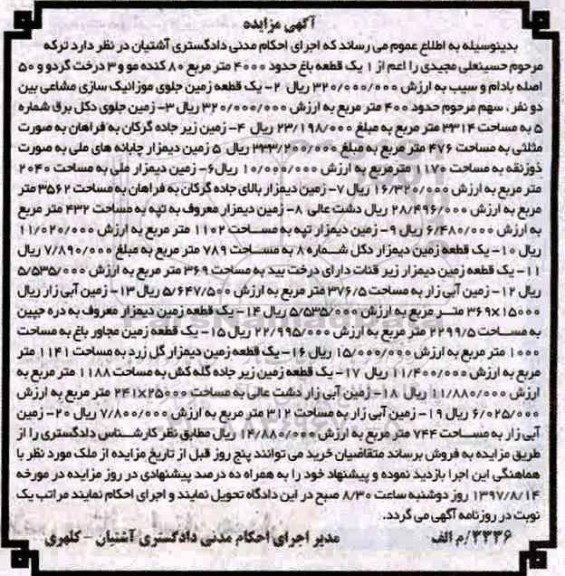 آگهی مزایده
بدینوسیله به اطلاع عموم می رساند که اجرای احکام مدنی دادگستری آشتیان در نظر دارد ترکه
مرحوم حسینعلی مجیدی را اعم از ۱ یک قطعه باغ حدود ۴۰۰۰ متر مربع ۸۰ کنده مو و ۳ درخت گردو و ۵۰
اصله بادام و سیب به ارزش ۳۲۰/۰۰۰/۰۰۰ ریال ۲- یک قطعه زمین جلوی موزائیک سازی مشاعی بین
دو نفر ، سهم مرحوم حدود ۴۰۰ متر مربع به ارزش ۳۲۰/۰۰۰/۰۰۰ ۳- زمین جلوی دکل برق شماره
۵ به مساحت ۳۳۱۴ متر مربع به مبلغ ۲۳/۱۹۸/۰۰۰ ریال ۴- زمین زیر جاده گرکان به فراهان به صورت
مثلثی به مساحت ۴۷۶ متر مربع به مبلغ ۳۳۳/۲۰۰/۰۰۰ ریال ۵ زمین دیمزار چاپانه های ملی به صورت
ذوزنقه به مساحت ۱۱۷۰ مترمربع به ارزش ۱۰/۰۰۰/۰۰۰ ریال ۶- زمین دیمزار ملی به مساحت ۲۰۴۰
متر مربع به ارزش ۱۶/۳۲۰/۰۰۰ ریال ۷- زمین دیمزار بالای جاده گرکان به فراهان به مساحت ۳۵۶۲ متر
مربع به ارزش ۲۸/۴۹۶/۰۰۰ ریال دشت عالی ۸- زمین دیمزار معروف به تپه به مساحت ۴۳۲ متر مربع
به ارزش ۶/۴۸۰/۰۰۰ ریال ۹- زمین دیمزار تپه به مساحت ۱۱۰۲ متر مربع به ارزش ۱۱/۰۲۰/۰۰۰
ریال ۱۰- یک قطعه زمین دیمزار دکل شماره ۸ به مساحت ۷۸۹ متر مربع به مبلغ ۷/۸۹۰/۰۰۰ ریال
۱۱- یک قطعه زمین دیمزار زیر قنات دارای درخت بید به مساحت ۳۶۹ متر مربع به ارزش ۵/۵۳۵/۰۰۰
ریال ۱۲- زمین آبی زار به مساحت ۳۷۶/۵ متر مربع به ارزش ۵/۶۴۷/۵۰۰ ریال ۱۳- زمین آبی زار ریال
۳۶۹×۱۵۰۰۰ متر مربع به ارزش ۵/۵۳۵/۰۰۰ ریال ۱۴- یک قطعه زمین دیمزار معروف به دره جیین
به مساحت ۲۲۹۹/۵ متر مربع به ارزش ۲۲/۹۹۵/۰۰۰ ریال ۱۵- یک قطعه زمین مجاور باغ به مساحت
۱۰۰۰ متر مربع به ارزش ۱۵/۰۰۰/۰۰۰ ریال ۱۶- یک قطعه زمین دیمزار گل زرد به مساحت ۱۱۴۱ متر
مربع به ارزش ۱۱/۴۰۰/۰۰۰ ریال ۱۷- یک قطعه زمین زیر جاده گله کش به مساحت ۱۱۸۸ متر مربع به
ارزش ۱۱/۸۸۰/۰۰۰ ریال ۱۸- زمین آبی زار دشت عالی به مساحت ۲۵۰۰۰×۲۴۱ متر مربع به ارزش
۶/۰۲۵/۰۰۰ ریال ۱۹- زمین آبی زار به مساحت ۳۱۲ متر مربع به ارزش ۷/۸۰۰/۰۰۰ ریال ۲۰- زمین
آبی زار به مساحت ۷۴۴ متر مربع به ارزش ۱۴/۸۸۰/۰۰۰ ریال مطابق نظر کارشناس دادگستری را از
طریق مزایده به فروش برساند متقاضیان خرید می توانند پنج روز قبل از تاریخ مزایده از ملک مورد نظر با
هماهنگی این اجرا بازدید نموده و پیشنهاد خود را به همراه ده درصد پیشنهادی در روز مزایده در مورخه
۱۳۹۷/۸/۱۴ روز دوشنبه ساعت ۸/۳۰ صبح در این دادگاه تحویل نمایند و اجرای احکام نمایند مراتب یک
نوبت در روزنامه آگهی می گردد.
۳۳۳۶/م الف مدیر اجرای احکام مدنی دادگستری آشتیان - کلهری